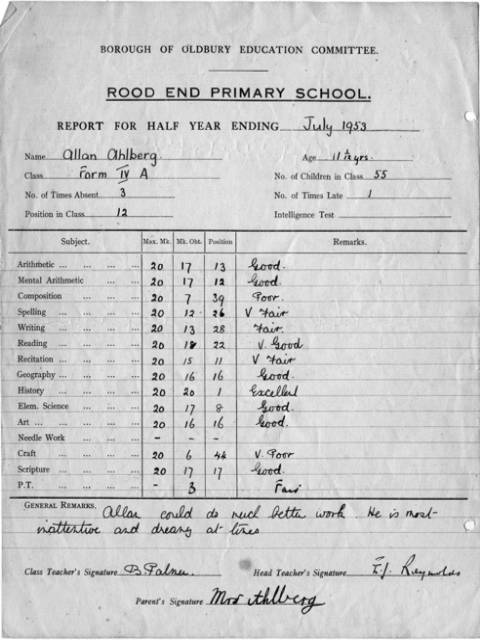 BOROUGH OF OLDBURY EDUCATION COMMITTEE.
ROOD END PRIMARY SCHOOL.
REPORT FOR HALF YEAR ENDING July 1953
Name Allan Ahlberg. Age 11 yrs.
Class Form IV A No. of Children in Class 55
No. of Times Absent 3 No. of Times Late 1
Position in Class 12 Intelligence Test
Subject. Max. Mk. Mk. Obt. Position Remarks.
Arithmetic ... ... ... ... 20 17 13 Good.
Mental Arithmetic ... ... 20 17 12 Good.
Composition ... ... ... 20 7 39 Poor.
Spelling ... ... ... ... 20 12 26 V Fair
Writing ... ... ... ... 20 13 28 Fair.
Reading ... ... ... ... 20 18 22 V. Good
Recitation ... ... ... ... 20 15 11 V Fair
Geography ... ... ... ... 20 16 16 Good.
History ... ... ... ... 20 20 1 Excellent
Elem. Science ... ... ... 20 17 8 Good.
Art ... ... ... ... ... 20 16 16 Good.
Needle Work ... ... ... - - -
Craft ... ... ... ... 20 6 V. Poor
Scripture ... ... ... ... 20 17 17 Good.
P.T. ... ... ... ... - 3 Fair
GENERAL REMARKS. Allan could do much better work. He is most
inattentive and dreamy at times
Class Teacher's Signature B Palmer. Head Teacher's Signature E.J. Reynolds
Parent's Signature Mrs Ahlberg